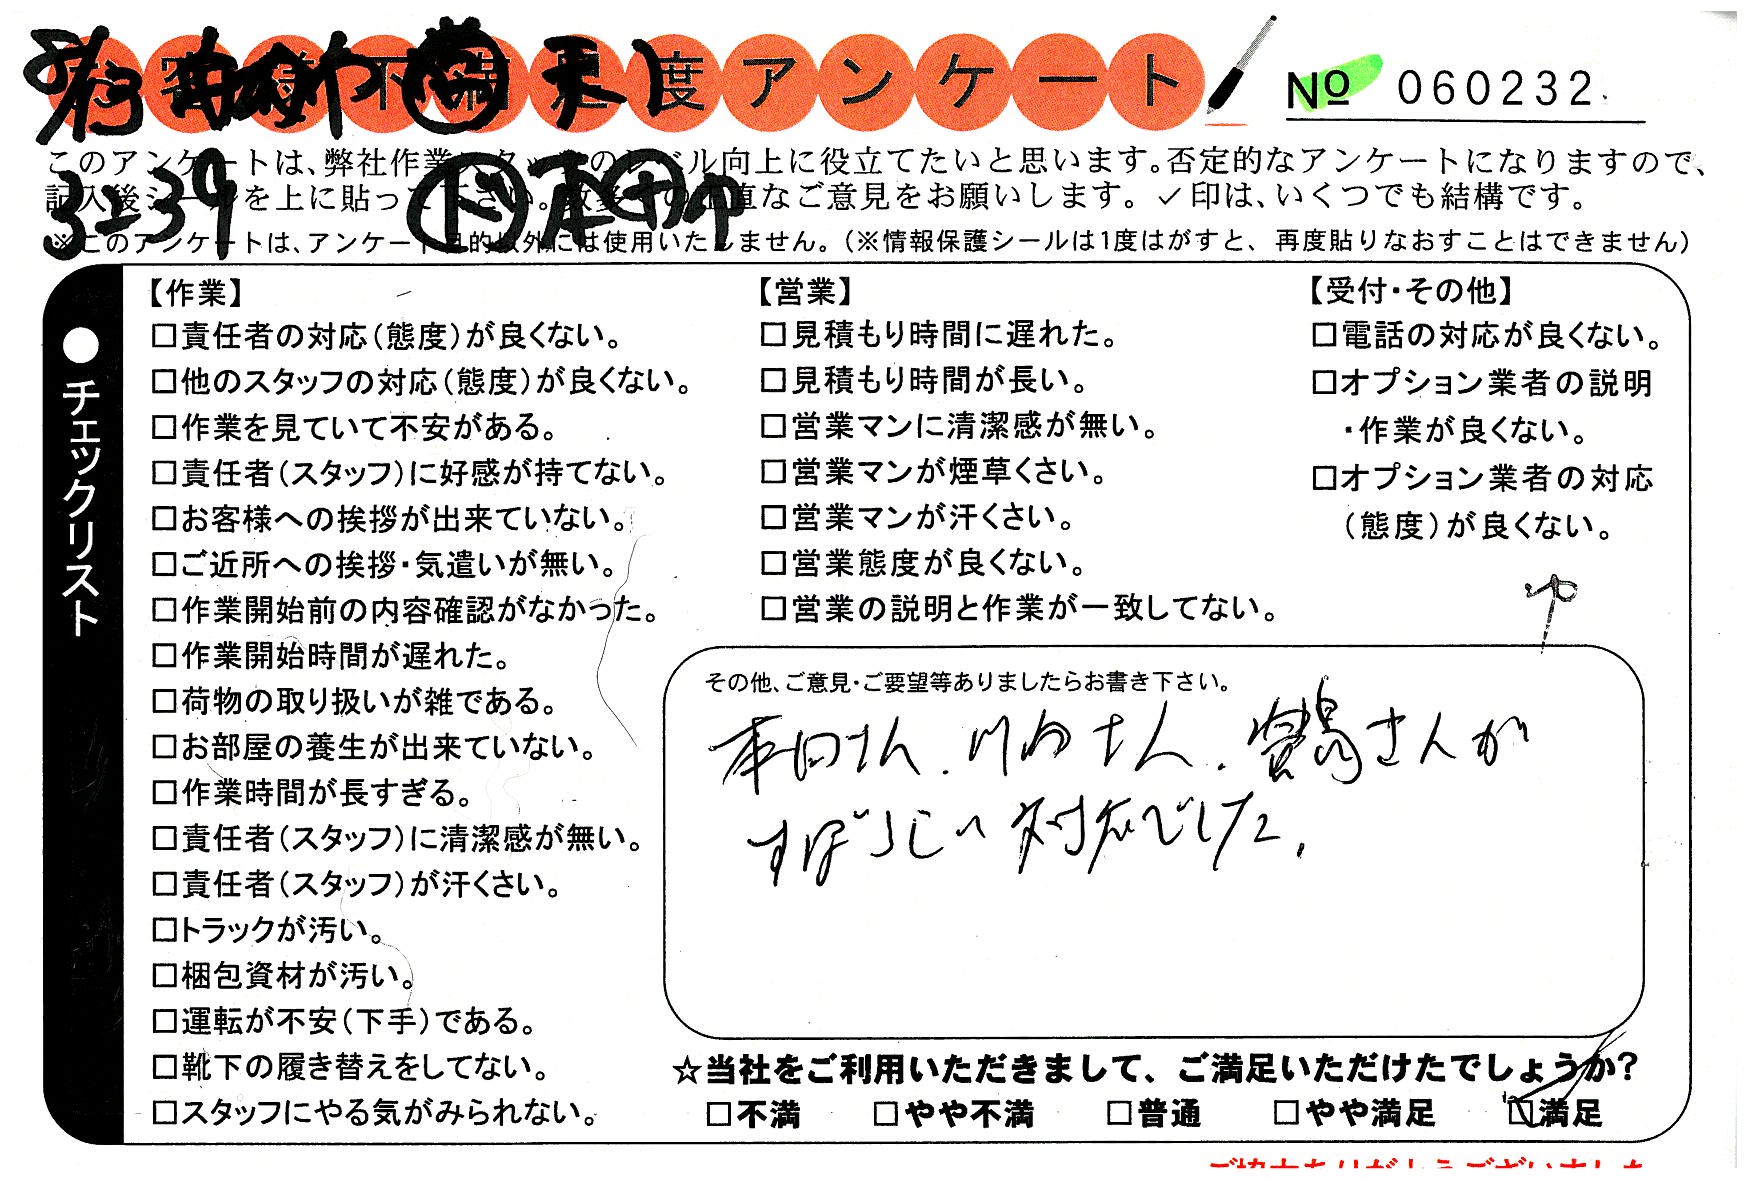 お客様不満足度アンケート
No 060232
このアンケートは、弊社作業スタッフのレベル向上に役立てたいと思います。否定的なアンケートになりますので、
記入後シールを上に貼って下さい。お客様の正直なご意見をお願いします。✓印は、いくつでも結構です。
※このアンケートは、アンケート目的以外には使用いたしません。(※情報保護シールは1度はがすと、再度貼りなおすことはできません)
3-39
●チェックリスト
【作業】
□責任者の対応(態度)が良くない。
□他のスタッフの対応(態度)が良くない。
□作業を見ていて不安がある。
□責任者(スタッフ)に好感が持てない。
□お客様への挨拶が出来ていない。
□ご近所への挨拶・気遣いが無い。
□作業開始前の内容確認がなかった。
□作業開始時間が遅れた。
□荷物の取り扱いが雑である。
□お部屋の養生が出来ていない。
□作業時間が長すぎる。
□責任者(スタッフ)に清潔感が無い。
□責任者(スタッフ)が汗くさい。
□トラックが汚い。
□梱包資材が汚い。
□運転が不安(下手)である。
□靴下の履き替えをしてない。
□スタッフにやる気がみられない。
【営業】
□見積もり時間に遅れた。
□見積もり時間が長い。
□営業マンに清潔感が無い。
□営業マンが煙草くさい。
□営業マンが汗くさい。
□営業態度が良くない。
□営業の説明と作業が一致してない。
【受付・その他】
□電話の対応が良くない。
□オプション業者の説明
・作業が良くない。
□オプション業者の対応
(態度)が良くない。
や
その他、ご意見・ご要望等ありましたらお書き下さい。
本田さん、川内さん、當島さんが
すばらしい対応でした。
☆当社をご利用いただきまして、ご満足いただけたでしょうか?
□不満 □やや不満 □普通 □やや満足 □満足
ご協力ありがとうございました